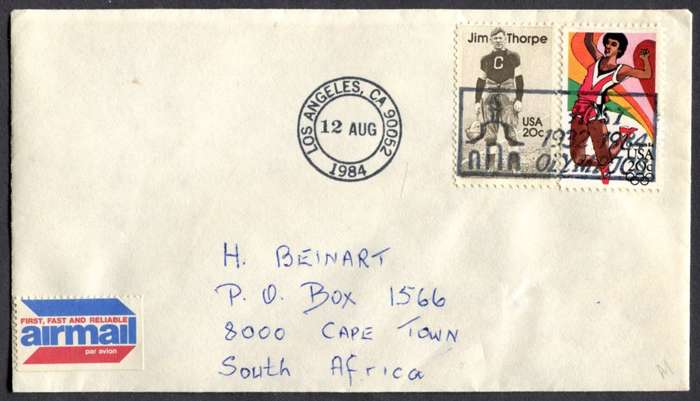 Jim Thorpe
USA
20c
USA
20c
LOS ANGELES, CA 90052
12 AUG
1984
HOST
1932 1984
OLYMPICS
H. BEINART
P. O. Box 1566
8000 CAPE TOWN
South Africa
FIRST, FAST AND RELIABLE
airmail
par avion